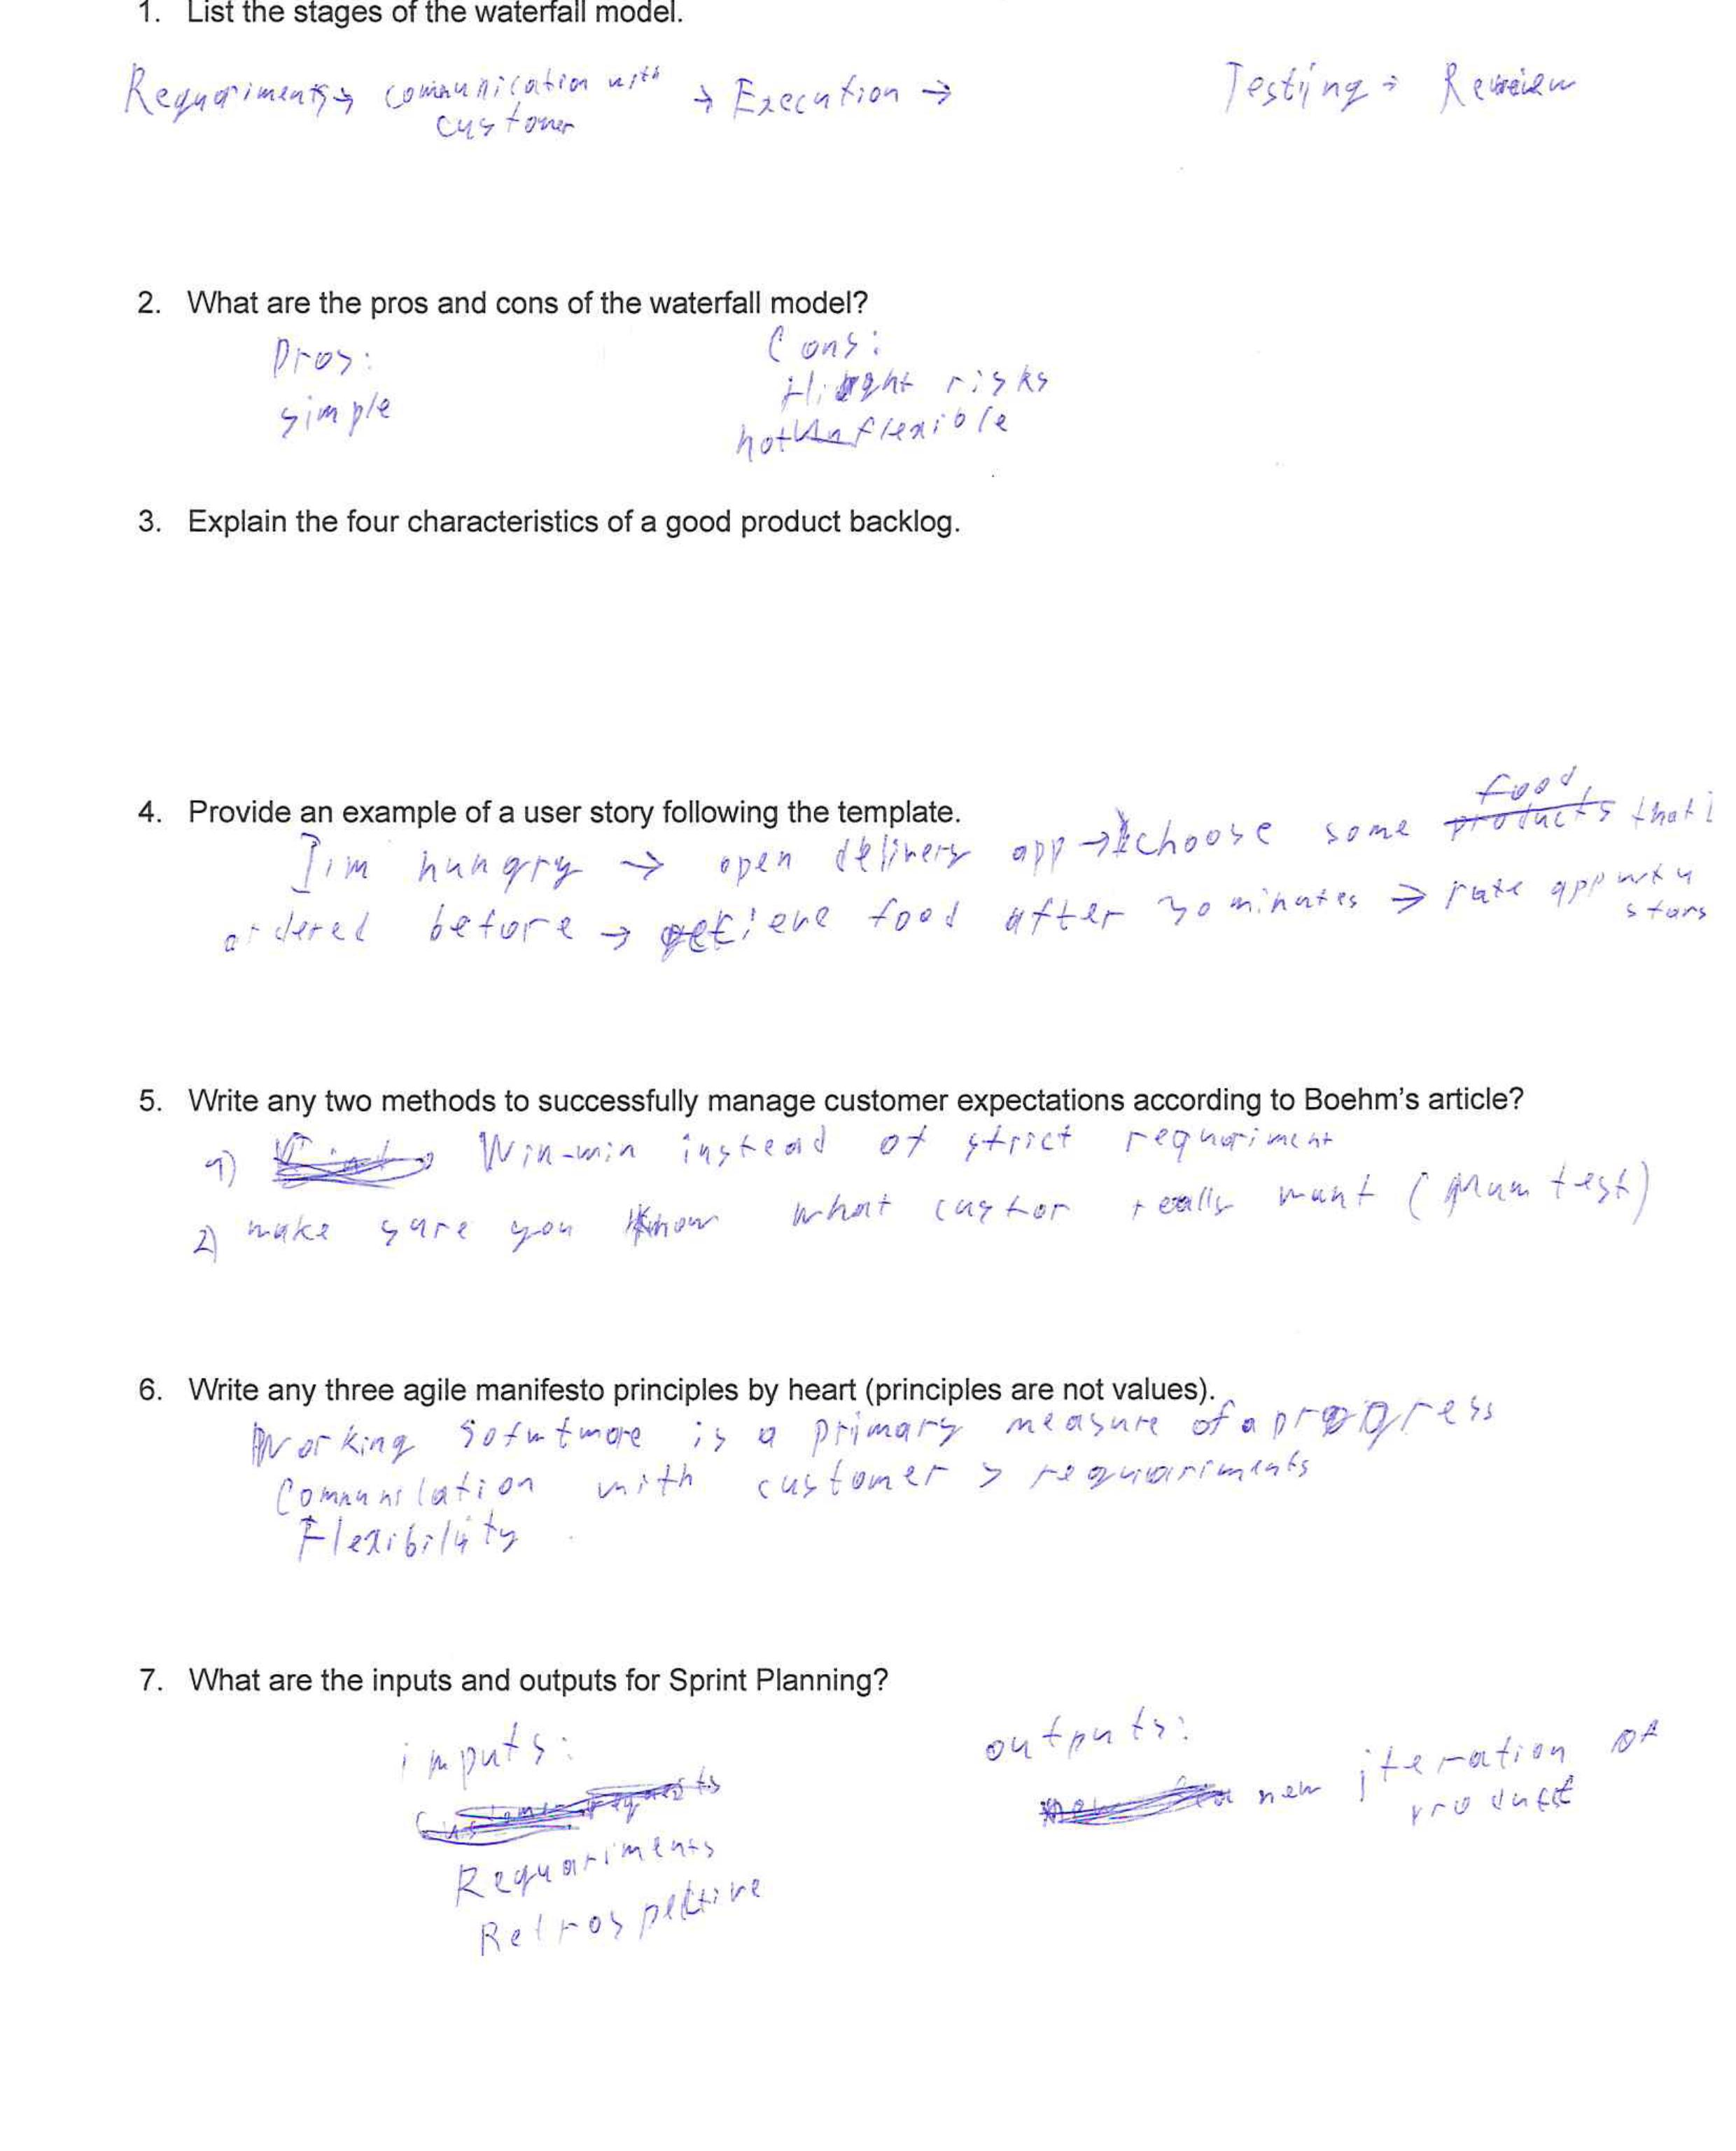 1. List the stages of the waterfall model.
Requariments → communication with → Execution → Testing → Review
customer
2. What are the pros and cons of the waterfall model?
Pros: Cons:
simple Hight risks
not flexible
3. Explain the four characteristics of a good product backlog.
4. Provide an example of a user story following the template.
food
I'm hungry → open delivery app → choose some products that i
ordered before → retieve food after 30 minutes → rate app with 4
stars
5. Write any two methods to successfully manage customer expectations according to Boehm's article?
1) Win-win instead of strict requariment
2) make sure you know what custor really want (mum test)
6. Write any three agile manifesto principles by heart (principles are not values).
Working is a primary measure of a progress
Communication with customer > requariments
Flexibility
7. What are the inputs and outputs for Sprint Planning?
inputs: outputs:
new iteration of
product
Requariments
Retrospective